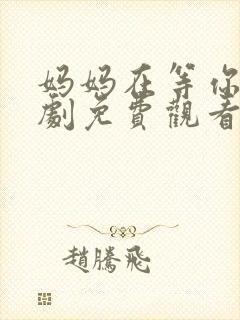 妈妈在等你
劇免費觀看
趙騰飛